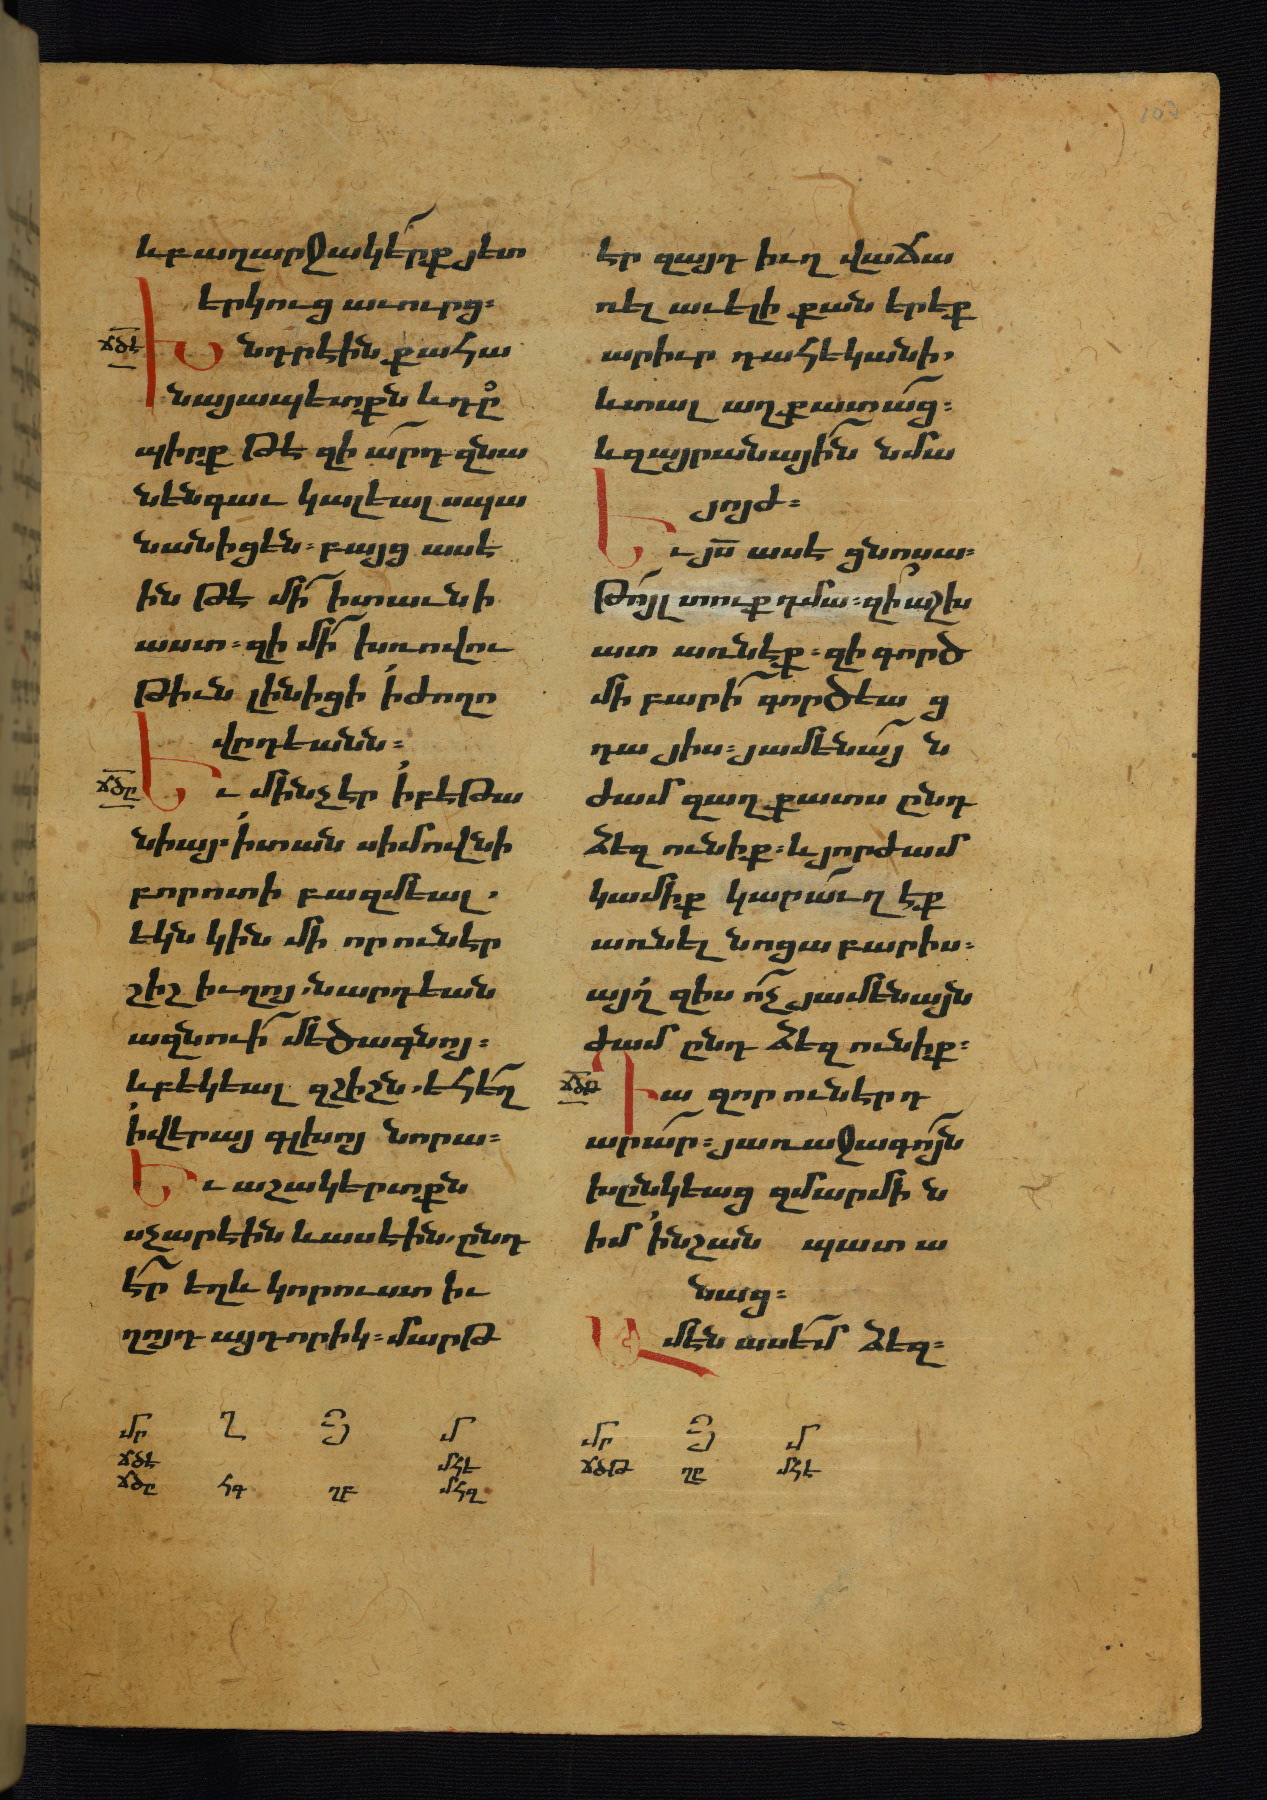 և բաղարջակերք յետ
երկուց աւուրց։
ճծէ
Խնդրէին քահա
նայապետքն և դը
պիրք թէ զի արդ զնա
նենգաւ կալեալ սպա
նանիցեն։ բայց ասէ
ին թէ մի ի տաւնի
աստ։ զի մի խռովու
թիւն լինիցի ի ժողո
վըրդեանն։
ճծը
Եւ մինչ էր ի բեթա
նիայ. ի տան սիմովնի
բորոտի բազմեալ,
եկն կին մի որ ունէր
շիշ իւղոյ, նարդեան
ազնուի մեծագնոյ։
և բեկեալ զշիշն, եհեղ
ի վերայ գլխոյ նորա։
Եւ աշակերտքն
սչարէին և ասէին, ընդ
էր եղև կորուստ իւ
ղոյդ այդորիկ։ մարթ
էր զայդ իւղ վաճա
ռել աւելի քան երեք
արիւր դահեկանի,
և տալ աղքատաց։
և զայրանային նմա
յոյժ։
Եւ յս ասէ ցնոսա։
թոյլ տուք դմա։ զի աշխ
ատ առնէք։ զի գործ
մի բարի գործեա ց
դա յիս։ յամենայ ն
ժամ զաղքատս ընդ
ձեզ ունիք։ և յորժամ
կամիք կարաւղ էք
առնել նոցա բարիս։
այղ զիս ոչ յամենայն
ժամ ընդ ձեզ ունիք։
ճծթ
Դա զոր ունէր դ
արար։ յառաջագոյն
խընկեաց զմարմի ն
իմ ի նշան պատ ա
նաց։
Ամէն ասեմ ձեզ։
մր Ղ Յ մ
ճծէ մհէ
ճծը հգ ղբ մհզ
մր Յ մ
ճծթ ղը մհէ